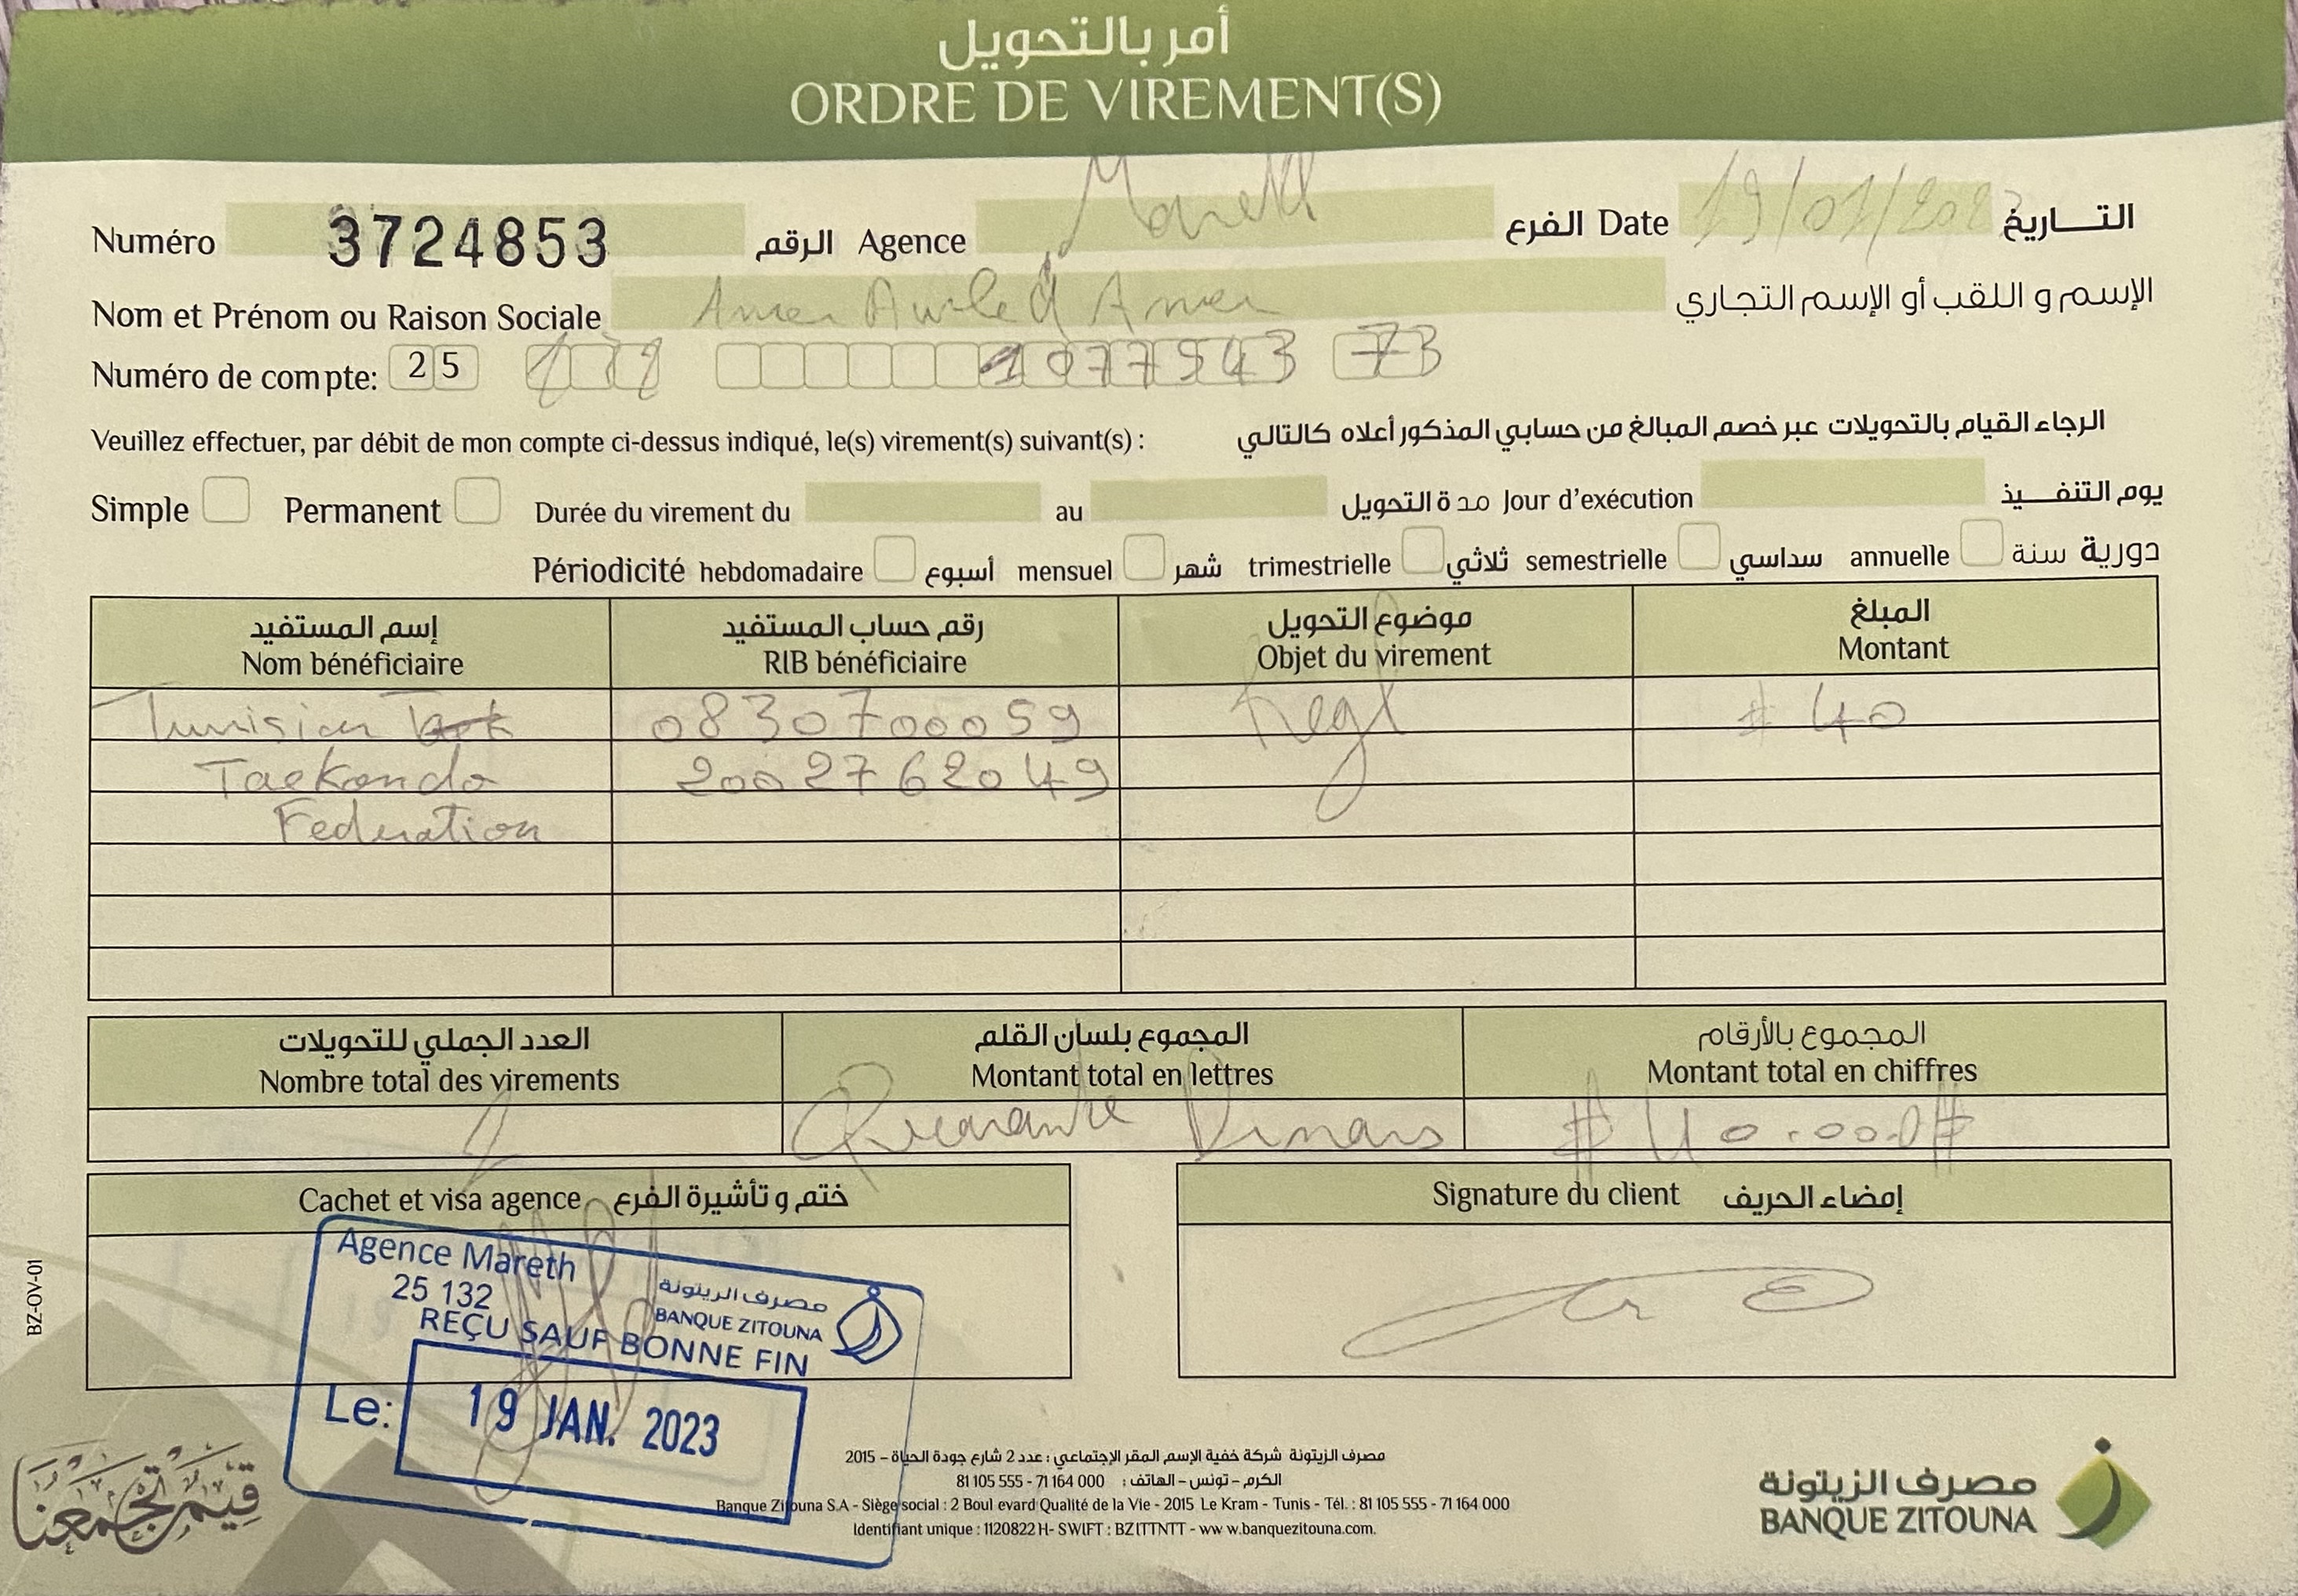 أمر بالتحويل
ORDRE DE VIREMENT(S)
Numéro 3724853 الرقم Agence Mareth الفرع Date 19/01/2023 التـــاريخ
Nom et Prénom ou Raison Sociale Amer Awled Amer الإسم و اللقب أو الإسم التجاري
Numéro de compte: 25 1077543 73
Veuillez effectuer, par débit de mon compte ci-dessus indiqué, le(s) virement(s) suivant(s) : الرجاء القيام بالتحويلات عبر خصم المبالغ من حسابي المذكور أعلاه كالتالي
Simple Permanent Durée du virement du au مدة التحويل Jour d'exécution يوم التنفـــيذ
Périodicité hebdomadaire أسبوع mensuel شهر trimestrielle ثلاثي semestrielle سداسي annuelle سنة دورية
إسم المستفيد رقم حساب المستفيد موضوع التحويل المبلغ
Nom bénéficiaire RIB bénéficiaire Objet du virement Montant
Tunisian 0830700059 Regl # 40
Taekondo 2002762049
Federation
العدد الجملي للتحويلات المجموع بلسان القلم المجموع بالأرقام
Nombre total des virements Montant total en lettres Montant total en chiffres
1 Quarante Dinars # 40.000 #
Cachet et visa agence ختم و تأشيرة الفرع Signature du client إمضاء الحريف
Agence Mareth
25 132
مصرف الزيتونة
BANQUE ZITOUNA
REÇU SAUF BONNE FIN
Le: 19 JAN. 2023
BZ-OV-01
قيم تجمعنا
مصرف الزيتونة شركة خفية الإسم المقر الإجتماعي : عدد 2 شارع جودة الحياة – 2015
الكرم – تونس – الهاتف : 81 105 555 - 71 164 000
Banque Zitouna S.A - Siège social : 2 Boul evard Qualité de la Vie - 2015 Le Kram - Tunis - Tél. : 81 105 555 - 71 164 000
Identifiant unique : 1120822 H- SWIFT : BZITTNTT - ww w.banquezitouna.com.
مصرف الزيتونة
BANQUE ZITOUNA